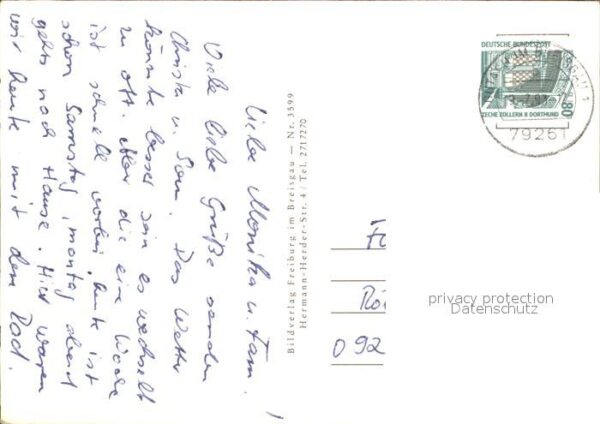 Liebe Monika u. Fam. !
Viele liebe Grüße senden
Christa u. Sam. Das Wetter
könnte besser sein es wechselt
zu oft. Aber die eine Woche
ist schnell vorbei, heute ist
schon Samstag, montag abend
gehts nach Hause. Hier waren
wir heute mit dem Rad.
Bildverlag Freiburg im Breisgau — Nr. 3599
Hermann-Herder-Str. 4 / Tel. 2717270
DEUTSCHE BUNDESPOST
80
ZECHE ZOLLERN II DORTMUND
79261
092
privacy protection
Datenschutz